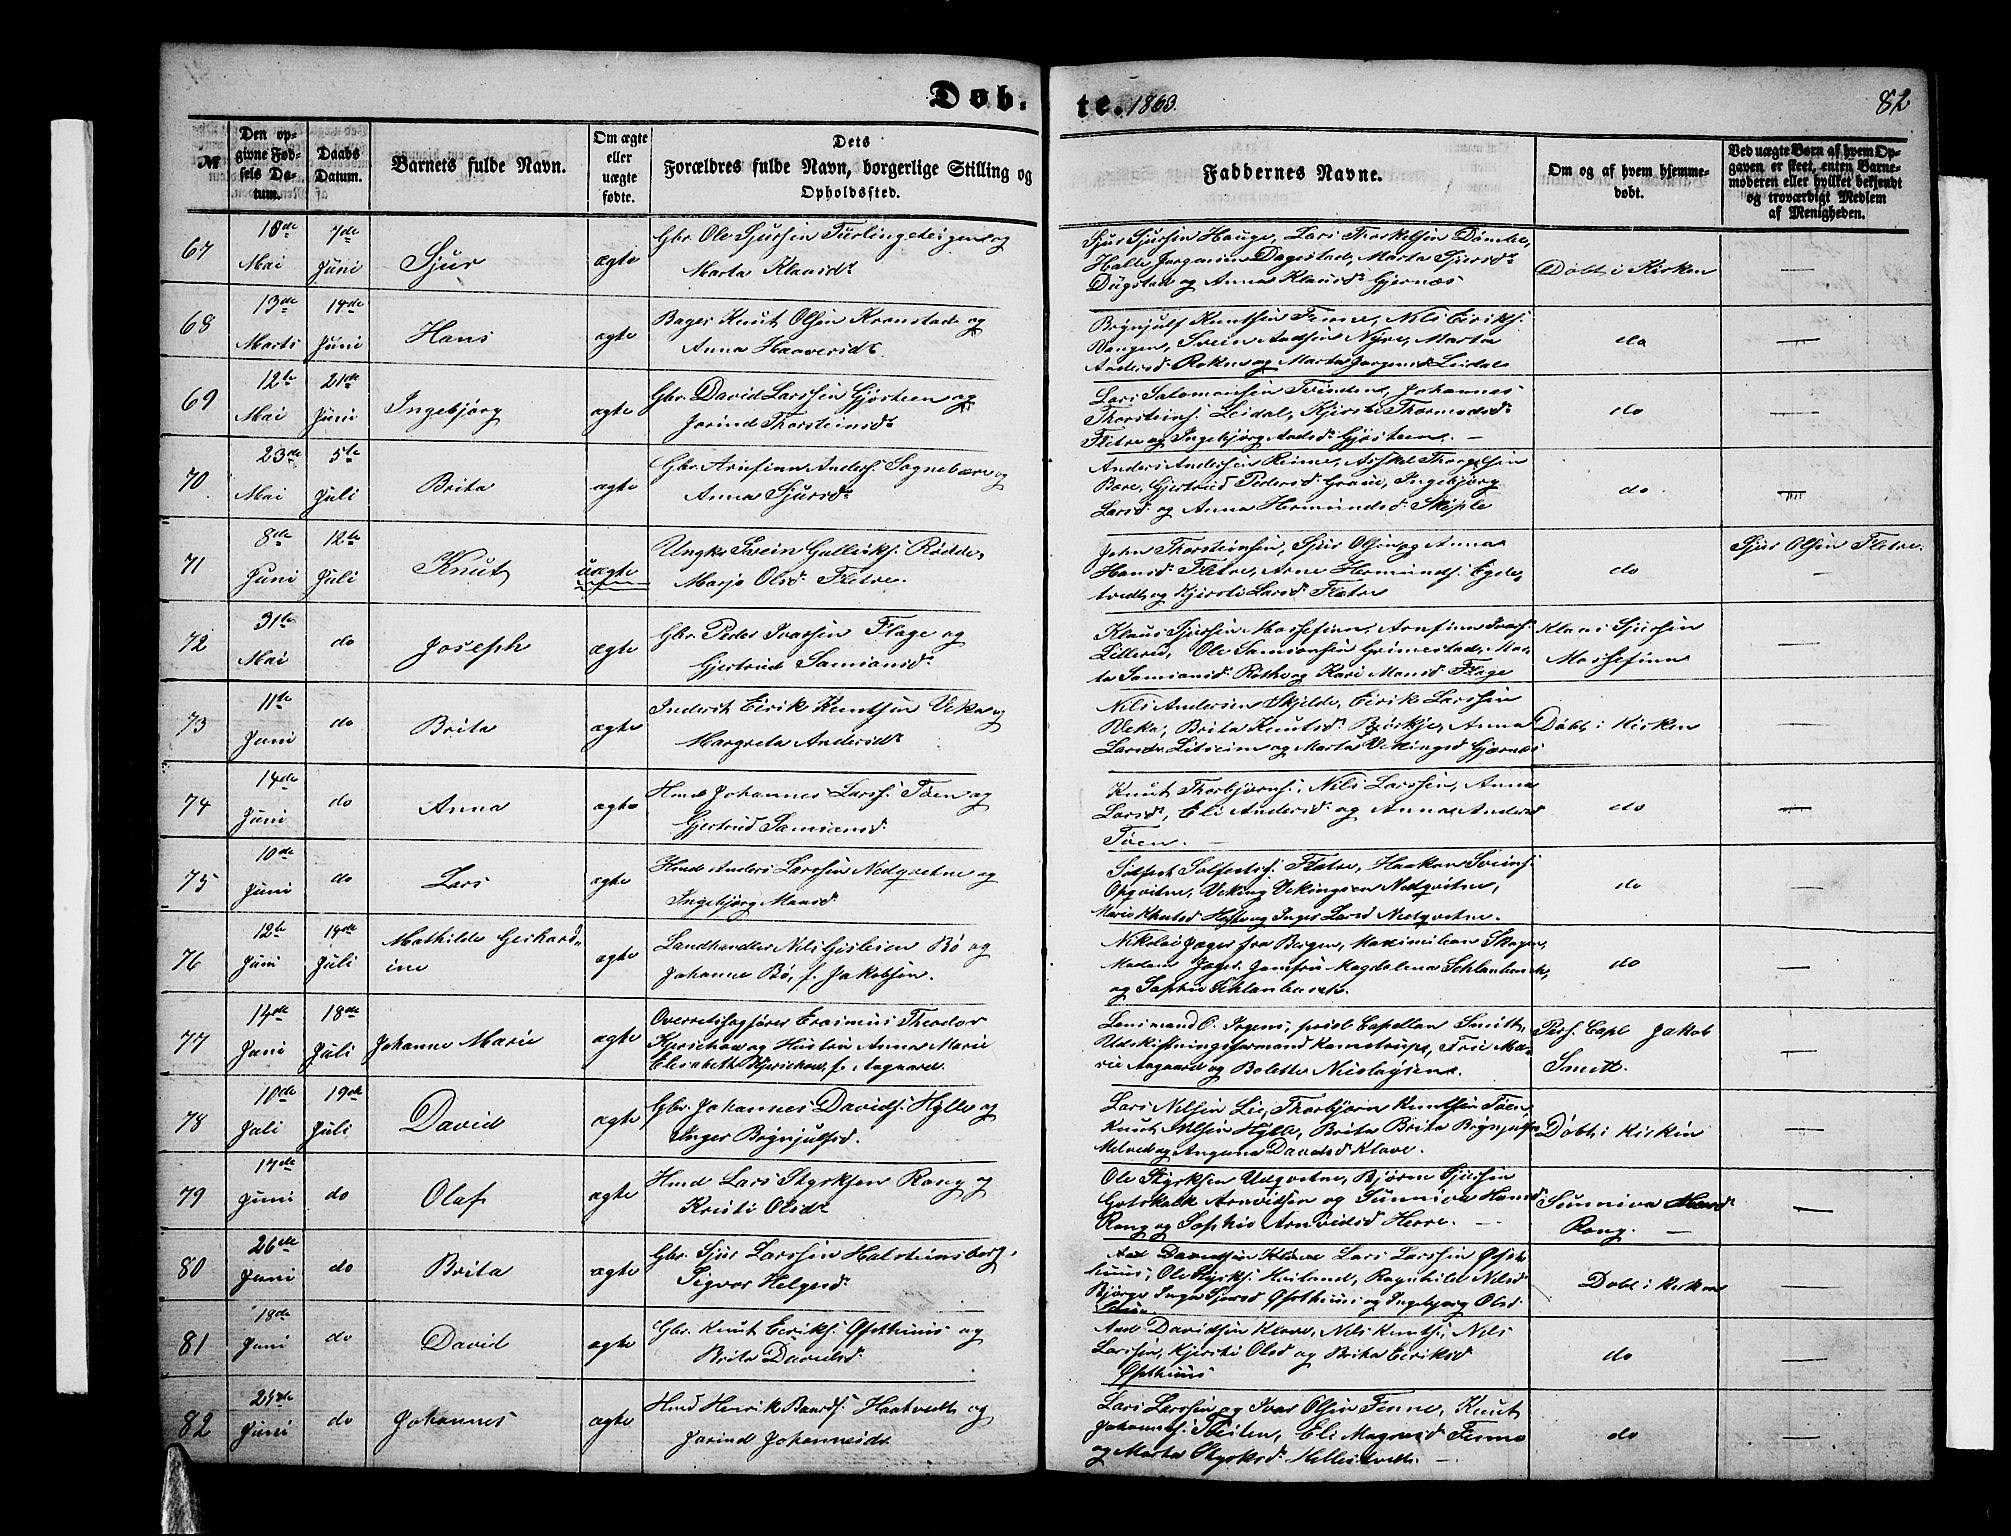 Døb-
te. 1863.
82
№
Den op-
givne Fød-
sels Da-
tum.
Daabs
Datum.
Barnets fulde Navn.
Om ægte
eller
uægte
fødte.
Dets
Forældres fulde Navn, borgerlige Stilling og
Opholdsted.
Faddernes Navne.
Om og af hvem hjemme-
døbt.
Ved uægte Børn af hvem Op-
gaven er skeet, enten Barne-
moderen eller hvilket bekjendt
og troværdigt Medlem
af Menigheden.
67
18de
Mai
7de
Juni
Sjur
ægte
Gbr. Ole Sjursen og
Marta Klausdr
Sjur Sjursen Hauge, Lars Thorkelsen Dømbe,
Halle Jørgensen Dagestad, Marta Sjursdr
Dugstad og Anna Klausdr Gjernæs
Døbt i Kirken
68
13de
Marts
14de
Juni
Hans
ægte
Bager Knut Olsen Kronstad og
Anna Haaversdr
Brynjulf Knutsen Finne, Nils Eiriks.
Vangen, Svein Nyre, Marta
Andersd. Rokne og Marta Jørgensd. Leidal
do
69
12te
Mai
21de
Juni
Ingebjørg
ægte
Gbr. David Larssen Gjøsteen og
Jorind Thorsteinsdr
Lars Salomonsen Tvinden, Johannes
Thorsteins. Leidal, Kjersti Thormodsdr
Fletre og Ingebjørg Gjøsteen. –
do
70
23de
Mai
5te
Juli
Brita
ægte
Gbr. Arnfinn Anders. Sognebære og
Anna Sjursdr
Anders Andersen Rinne,
Bære, Gjertrud Pedersd. Graue, Ingebjørg
Larsd. og Anna Hermundsd. Skiple
do.
71
8de
Juni
12te
Juli
Knut
uægte
Ungk. Svein Gulleiks. Rødde,
Marja Olsd. Fletre.
John Thorsteinsen, Sjur Olsen og Anna
Hansd. Fletre, Arne Hermunds. Egde-
tveit og Kjersti Larsd. Fletre
do
Sjur Olsen Fletre.
72
31te
Mai
do
Joseph
ægte
Gbr. Peder Ivarsen Flage og
Gjertrud Samiansdr
Klaus Sjursen Mossefinn, Arnfinn Ivars.
Lillerei, Ole Samiansen Grimestad, Mar-
ta Samiansd. Rothe og Kari Monsd. Flage
Klaus Sjursen
Mossefinn
73
11te
Juni
do
Brita
ægte
Inderst Eirik Knutsen Veka og
Margreta Andersdr
Nils Andersen Skjelde, Eirik Larssen
Veka, Brita Knutsdr Bjørkje, Anna
Larsdr. og Marta Vikingsd. Gjærnes
Døbt i Kirken
74
14de
Juni
do
Anna
ægte
Hmd Johannes Larss. Tøen og
Gjertrud Samiansd.
Knut Thorbjørns., Nils Larssen, Anna
Larsd., Eli Andersd. og Anna Andersd
Tøen. –
do
75
10de
Juni
do
Lars
ægte
Hmd Anders Larssen Nedqvitne og
Ingebjørg Monsd.
Solfest Solfests. Fletre, Haakon Sveins.
Opqvitne, Viking Vikingsen Nedqvitne,
Maria Knutsd. og Inger Larsd Nedqvitne.
do
76
12te
Juni
14de
Juli
Mathilde Gerhard-
ine
ægte
Landhandler Nils Bø og
Johanne Bø, f. Jakobsen.
Nikolai Jæger fra Bergen, Maximilian Skagen,
Madam Jæger, Jomfru Magdalena Schlanbusch,
og Sophie Schlanbusch.
do
77
14de
Juni
18de
Juli
Johanne Marie
ægte
Overretssagfører Erasmus Theodor
Kjerschow og Hustru Anna Marie
Elisabeth Kjerschow, f. Aagaard.
Lensmand O. Irgens, pers. Capellan Smitt,
Udskiftningsformand Kamstrup, Frue Ma-
rie Aagaard og Bolette Nicolaysen.
Pers. Capl. Jakob
Smitt.
78
10de
Juli
19de
Juli
David
ægte
Gbr. Johannes Davids. Hylle og
Inger Brynjulfsd.
Lars Nilsen Lie, Thorbjørn Knutsen Tøen,
Knut Nilsen Hylle, Brita Brita Brynjulfs.
Melved og Anguna Davidsd Kløve.
Døbt i Kirken
79
17de
Juni
do
Olaf
ægte
Hmd Lars Styrksen Rong og
Kristi Olsdr
Ole Styrksen Udqvitne, Bjørne Sjursen
Gotskalk Arnvidsen og Sunniva Hansd.
Rong og Sophie Arnvidsd Herre. –
Sunniva Hansdr
Rong. –
80
26de
Juni
do
Brita
ægte
Gbr. Sjur Larssen Halsteinsberg,
Sigvor Helgesd.
Aad Davidsen Kløve Lars Larssen Øfst-
huus, Ole Styrks. Heiland, Ragnhilde Nilsd
Bjørge Inger Sjursd Øfsthuus og Ingebjørg Olsd.
Døbt i Kirken
81
18de
Juni
do
David
ægte
Gbr. Knut Eiriks. Øfsthuus og
Brita Davidsd.
Aad Davidsen Kløve, Nils Knuts., Nils
Larssen, Kjersti Olsd og Brita Eiriksd
Øfsthuus
do
82
24de
Juni
do
Johannes
ægte
Hmd Henrik Baards. Haatvedt og
Jorind Johannesdr
Lars Larssen og Ivar Olsen Finne, Knut
Johanns. Tveiten, Eli Magnesd Finne
og Marta Styrksd. Hellestveit. –
do